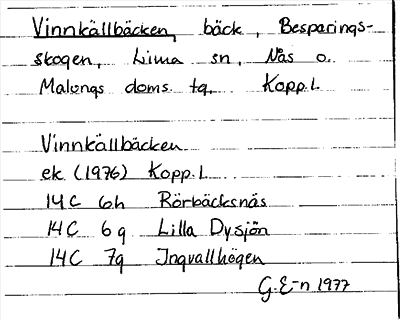 Vinnkällbäcken, bäck, Besparings-
skogen, Lima sn, Nås o.
Malungs doms. tg. Kopp.l.
Vinnkällbäcken
ek. (1976) Kopp.l.
14C 6h Rörbäcksnäs
14C 6g Lilla Dysjön
14C 7g Ingvallhögen
G.E-n 1977